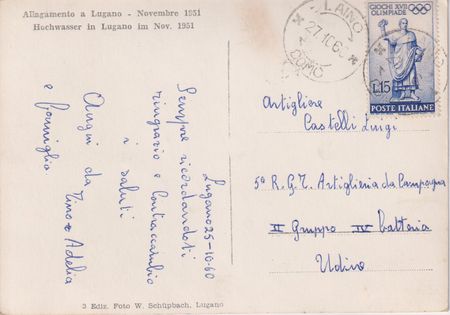 Allagamento a Lugano - Novembre 1951
Hochwasser in Lugano im Nov. 1951
Lugano 25-10-60
Sempre ricordandoti
ringrazio e Contraccambio
i saluti
Auguri da Tino e Adelia
e famiglia
3 Ediz. Foto W. Schüpbach, Lugano
LAINO
27.10.60
COMO
GIOCHI XVII
OLIMPIADE
L.15
POSTE ITALIANE
Artigliere
Castelli Luigi
5º R.G.T. Artiglieria da Campagna
II Gruppo IV batteria
Udine